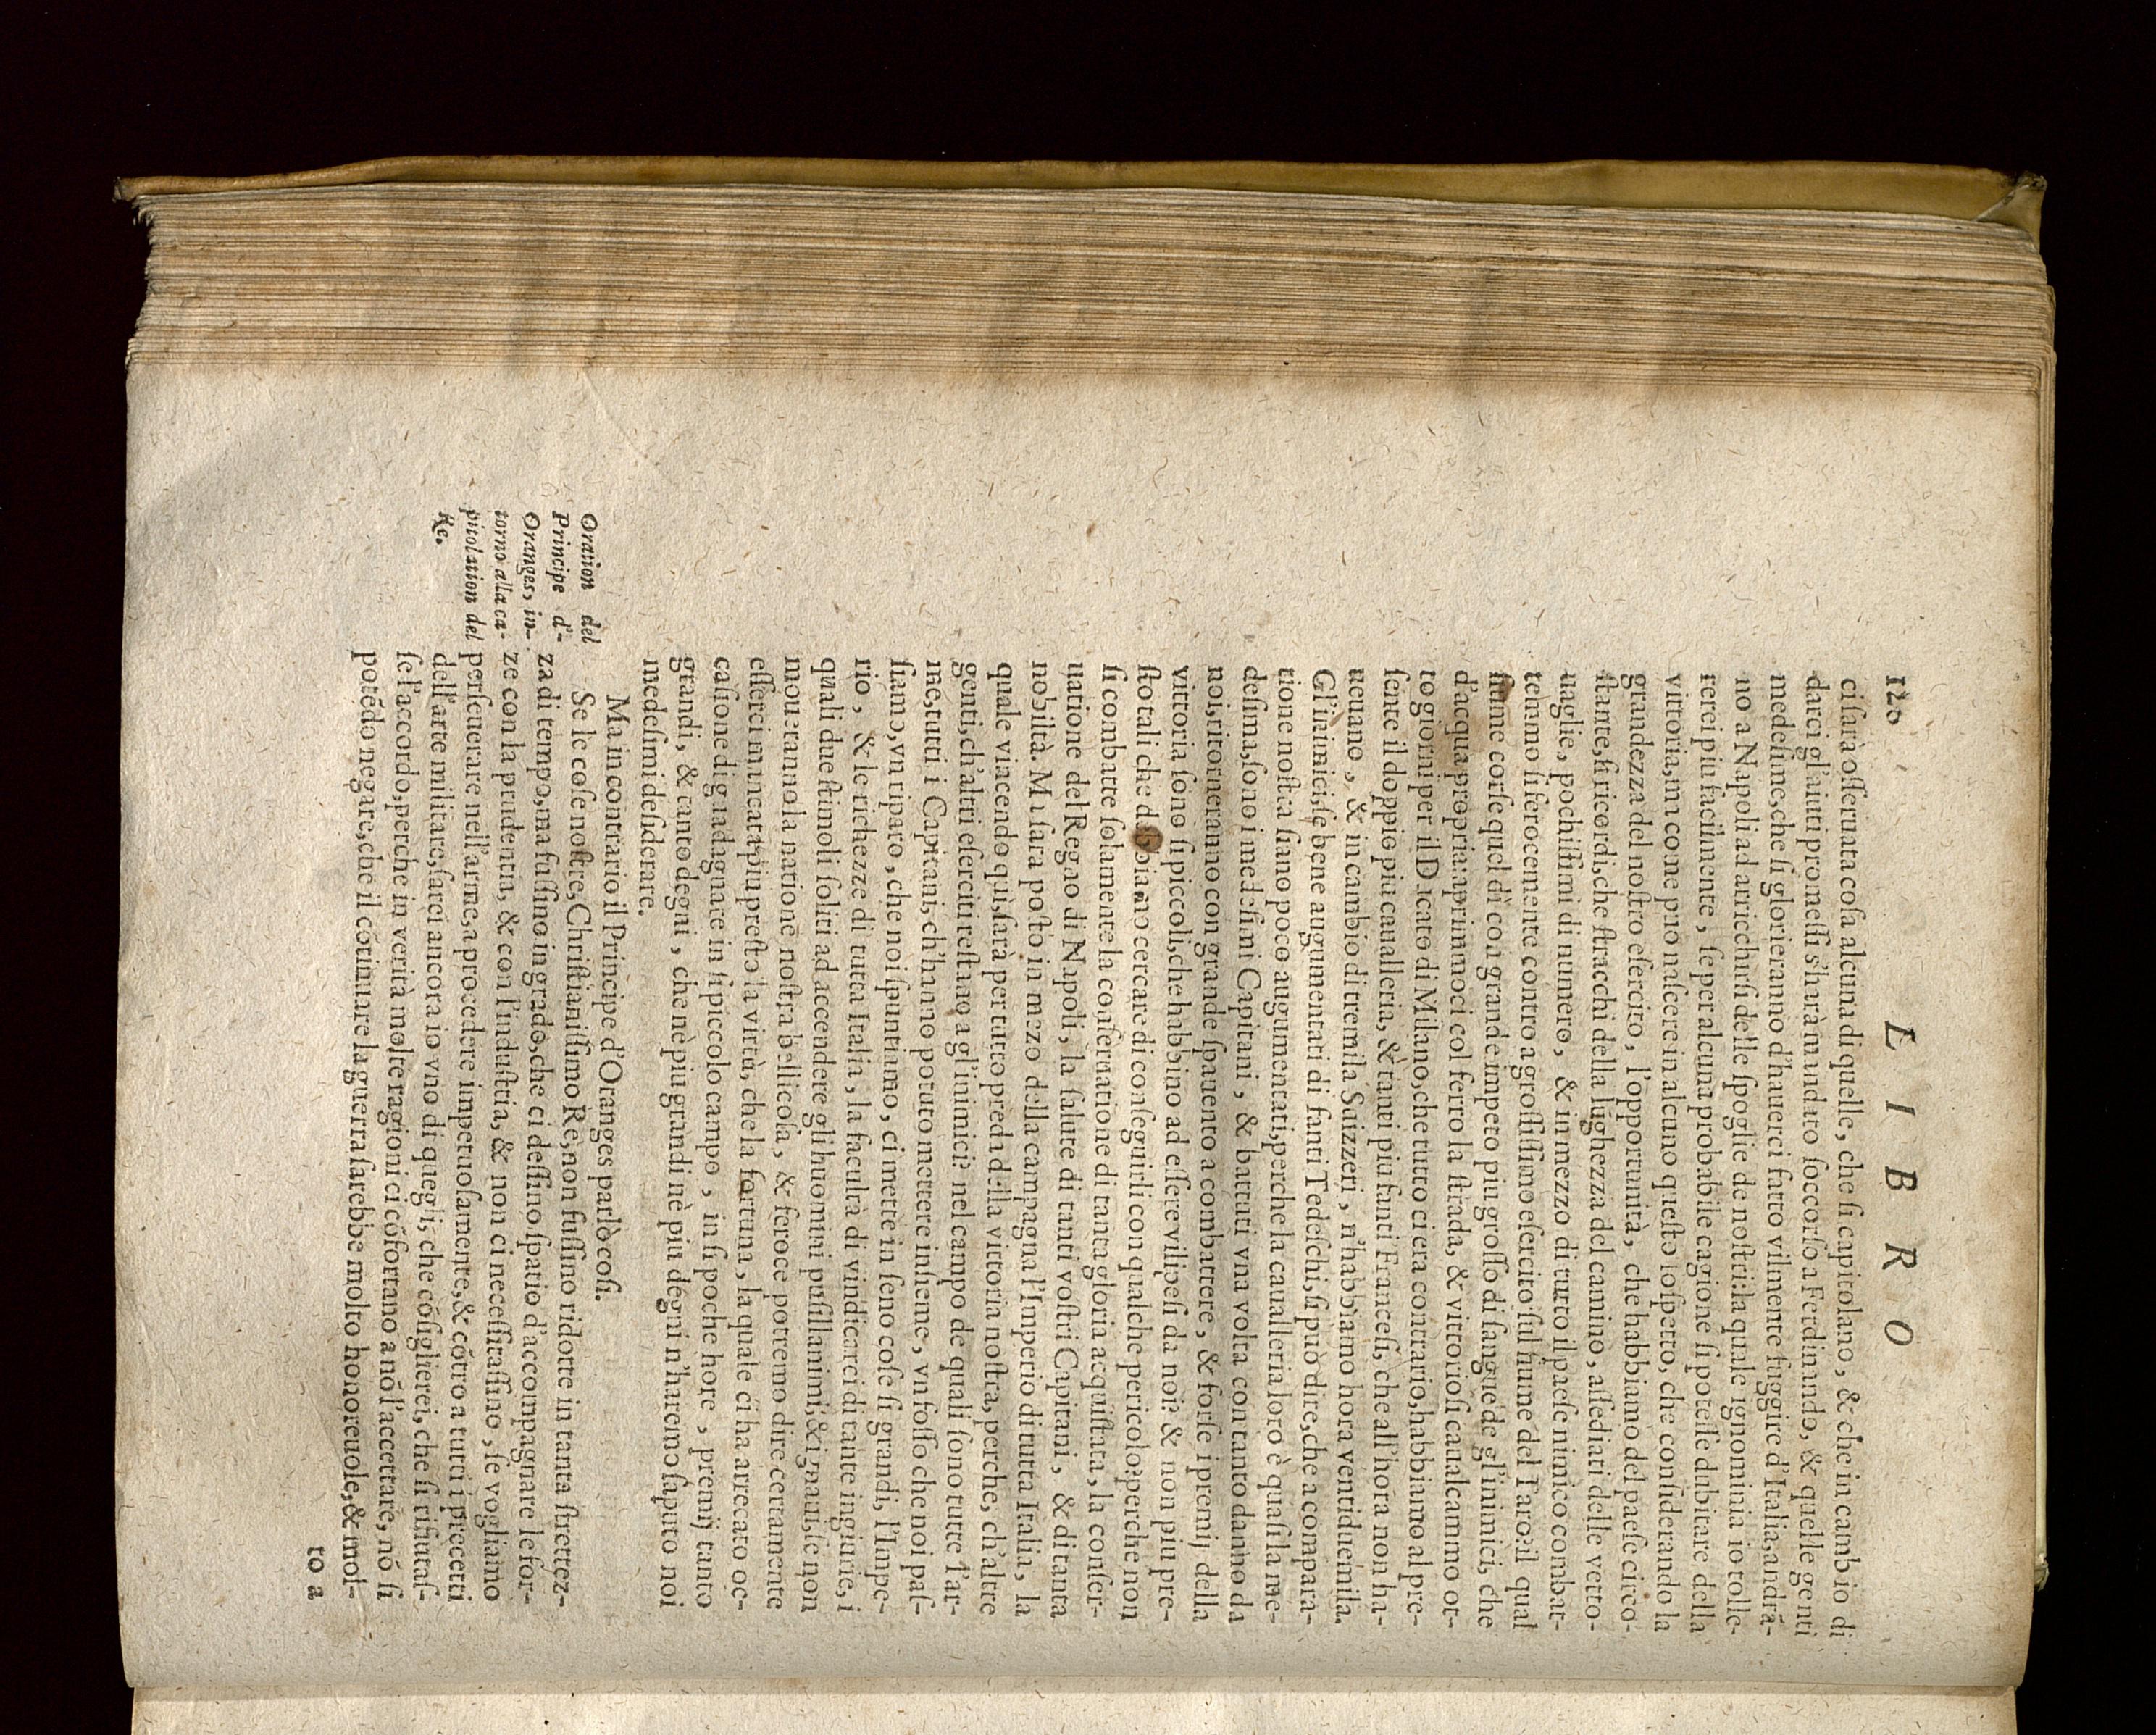 120 LIBRO
ci sarà osseruata cosa alcuna di quelle, che si capitolano, & che in cambio di
darci gl'aiuti promessi s'harà mandato soccorso a Ferdinando, & quelle genti
medesime, che si glorieranno d'hauerci fatto vilmente fuggire d'Italia, andrā-
no a Napoli ad arricchirsi delle spoglie de nostri: la quale ignominia io tolle-
rerei piu facilmente, se per alcuna probabile cagione si potesse dubitare della
vittoria, ma come puo nascere in alcuno questo sospetto, che considerando la
grandezza del nostro esercito, l'opportunità, che habbiamo del paese circo-
stante, si ricordi, che stracchi della lūghezza del camino, assediati delle vetto-
uaglie, pochissimi di numero, & in mezzo di tutto il paese nimico combat-
temmo si ferocemente contro a grossissimo esercito sul fiume del Taro: il qual
fiume corse quel dì con grande impeto piu grosso di sangue de gl'inimici, che
d'acqua propria: aprimmoci col ferro la strada, & vittoriosi caualcammo ot-
to giorni per il Ducato di Milano, che tutto ci era contrario, habbiamo al pre-
sente il doppio piu caualleria, & tanti piu fanti Francesi, che all'hora non ha-
ueuano, & in cambio di tremila Suizzeri, n'habbiamo hora ventiduemila.
Gl'inimici, se bene augumentati di fanti Tedeschi, si può dire, che a compara-
tione nostra siano poco augumentati, perche la caualleria loro è quasi la me-
desima, sono i medesimi Capitani, & battuti vna volta con tanto danno da
noi, ritorneranno con grande spauento a combattere, & forse i premij della
vittoria sono si piccoli, che habbino ad essere vilipesi da noi? & non piu pre-
sto tali che dobbiamo cercare di conseguirli con qualche pericolo? perche non
si combatte solamente la conseruatione di tanta gloria acquistata, la conser-
uatione del Regno di Napoli, la salute di tanti vostri Capitani, & di tanta
nobiltà. Ma sara posto in mezo della campagna l'Imperio di tutta Italia, la
quale viacendo quì, sarà per tutto preda della vittoria nostra, perche, ch'altre
genti, ch'altri eserciti restano a gl'inimici? nel campo de quali sono tutte l'ar-
me, tutti i Capitani, ch'hanno potuto mettere insieme, vn fosso che noi pas-
siamo, vn riparo, che noi spuntiamo, ci mette in seno cose si grandi, l'Impe-
rio, & le richezze di tutta Italia, la facultà di vindicarci di tante ingiurie, i
quali due stimoli soliti ad accendere gli huomini pusillanimi, & ignaui, se non
moueranno la natione nostra bellicosa, & feroce potremo dire certamente
esserci mancata piu presto la virtù, che la fortuna, la quale ci ha arrecato oc-
casione di guadagnare in si piccolo campo, in si poche hore, premij tanto
grandi, & tanto degni, che nè piu grandi nè piu degni n'haremo saputo noi
medesimi desiderare.
Ma in contrario il Principe d'Oranges parlò cosi.
Oration del
Principe d'-
Oranges, in-
torno alla ca-
pitolation del
Re.
Se le cose nostre, Christianissimo Re, non fussino ridotte in tanta strettez-
za di tempo, ma fussino in grado, che ci dessino spatio d'accompagnare le for-
ze con la prudentia, & con l'industria, & non ci necessitassino, se vogliamo
perseuerare nell'arme, a procedere impetuosamente, & cōtro a tutti i precetti
dell'arte militare, sarei ancora io vno di quegli, che cōsiglierei, che si rifiutas-
se l'accordo, perche in verità molte ragioni ci cōfortano a nō l'accettare, nō si
potēdo negare, che il cōtinuare la guerra sarebbe molto honoreuole, & mol-
to a